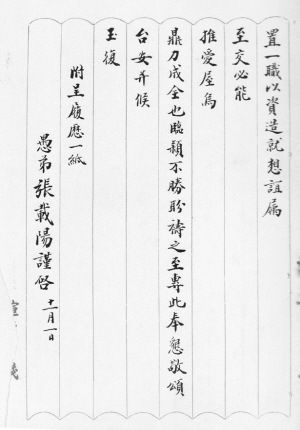 置一職以資造就想誼屬
至交必能
推愛屋烏
鼎力成全也臨穎不勝盼禱之至專此奉懇敬頌
台安并候
玉復
附呈履歷一紙
愚弟張載陽謹啓 十一月一日